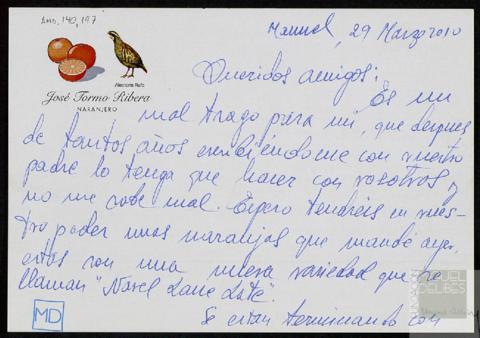 AMD, 140, 197
Manuel, 29 Marzo 2010
Alectoris Rufa
José Tormo Ribera
NARANJERO
Queridos amigos:
Es un
mal trago para mí, que después
de tantos años escribiéndome con vuestro
padre lo tenga que hacer con vosotros y
no me sabe mal. Espero tendréis en vues-
tro poder unas naranjas que mandé ayer,
estas son una nueva variedad que se
llaman "Navel Lane Late".
Se estan terminando con
MD
FUNDACIÓN
MIGUEL
DELIBES